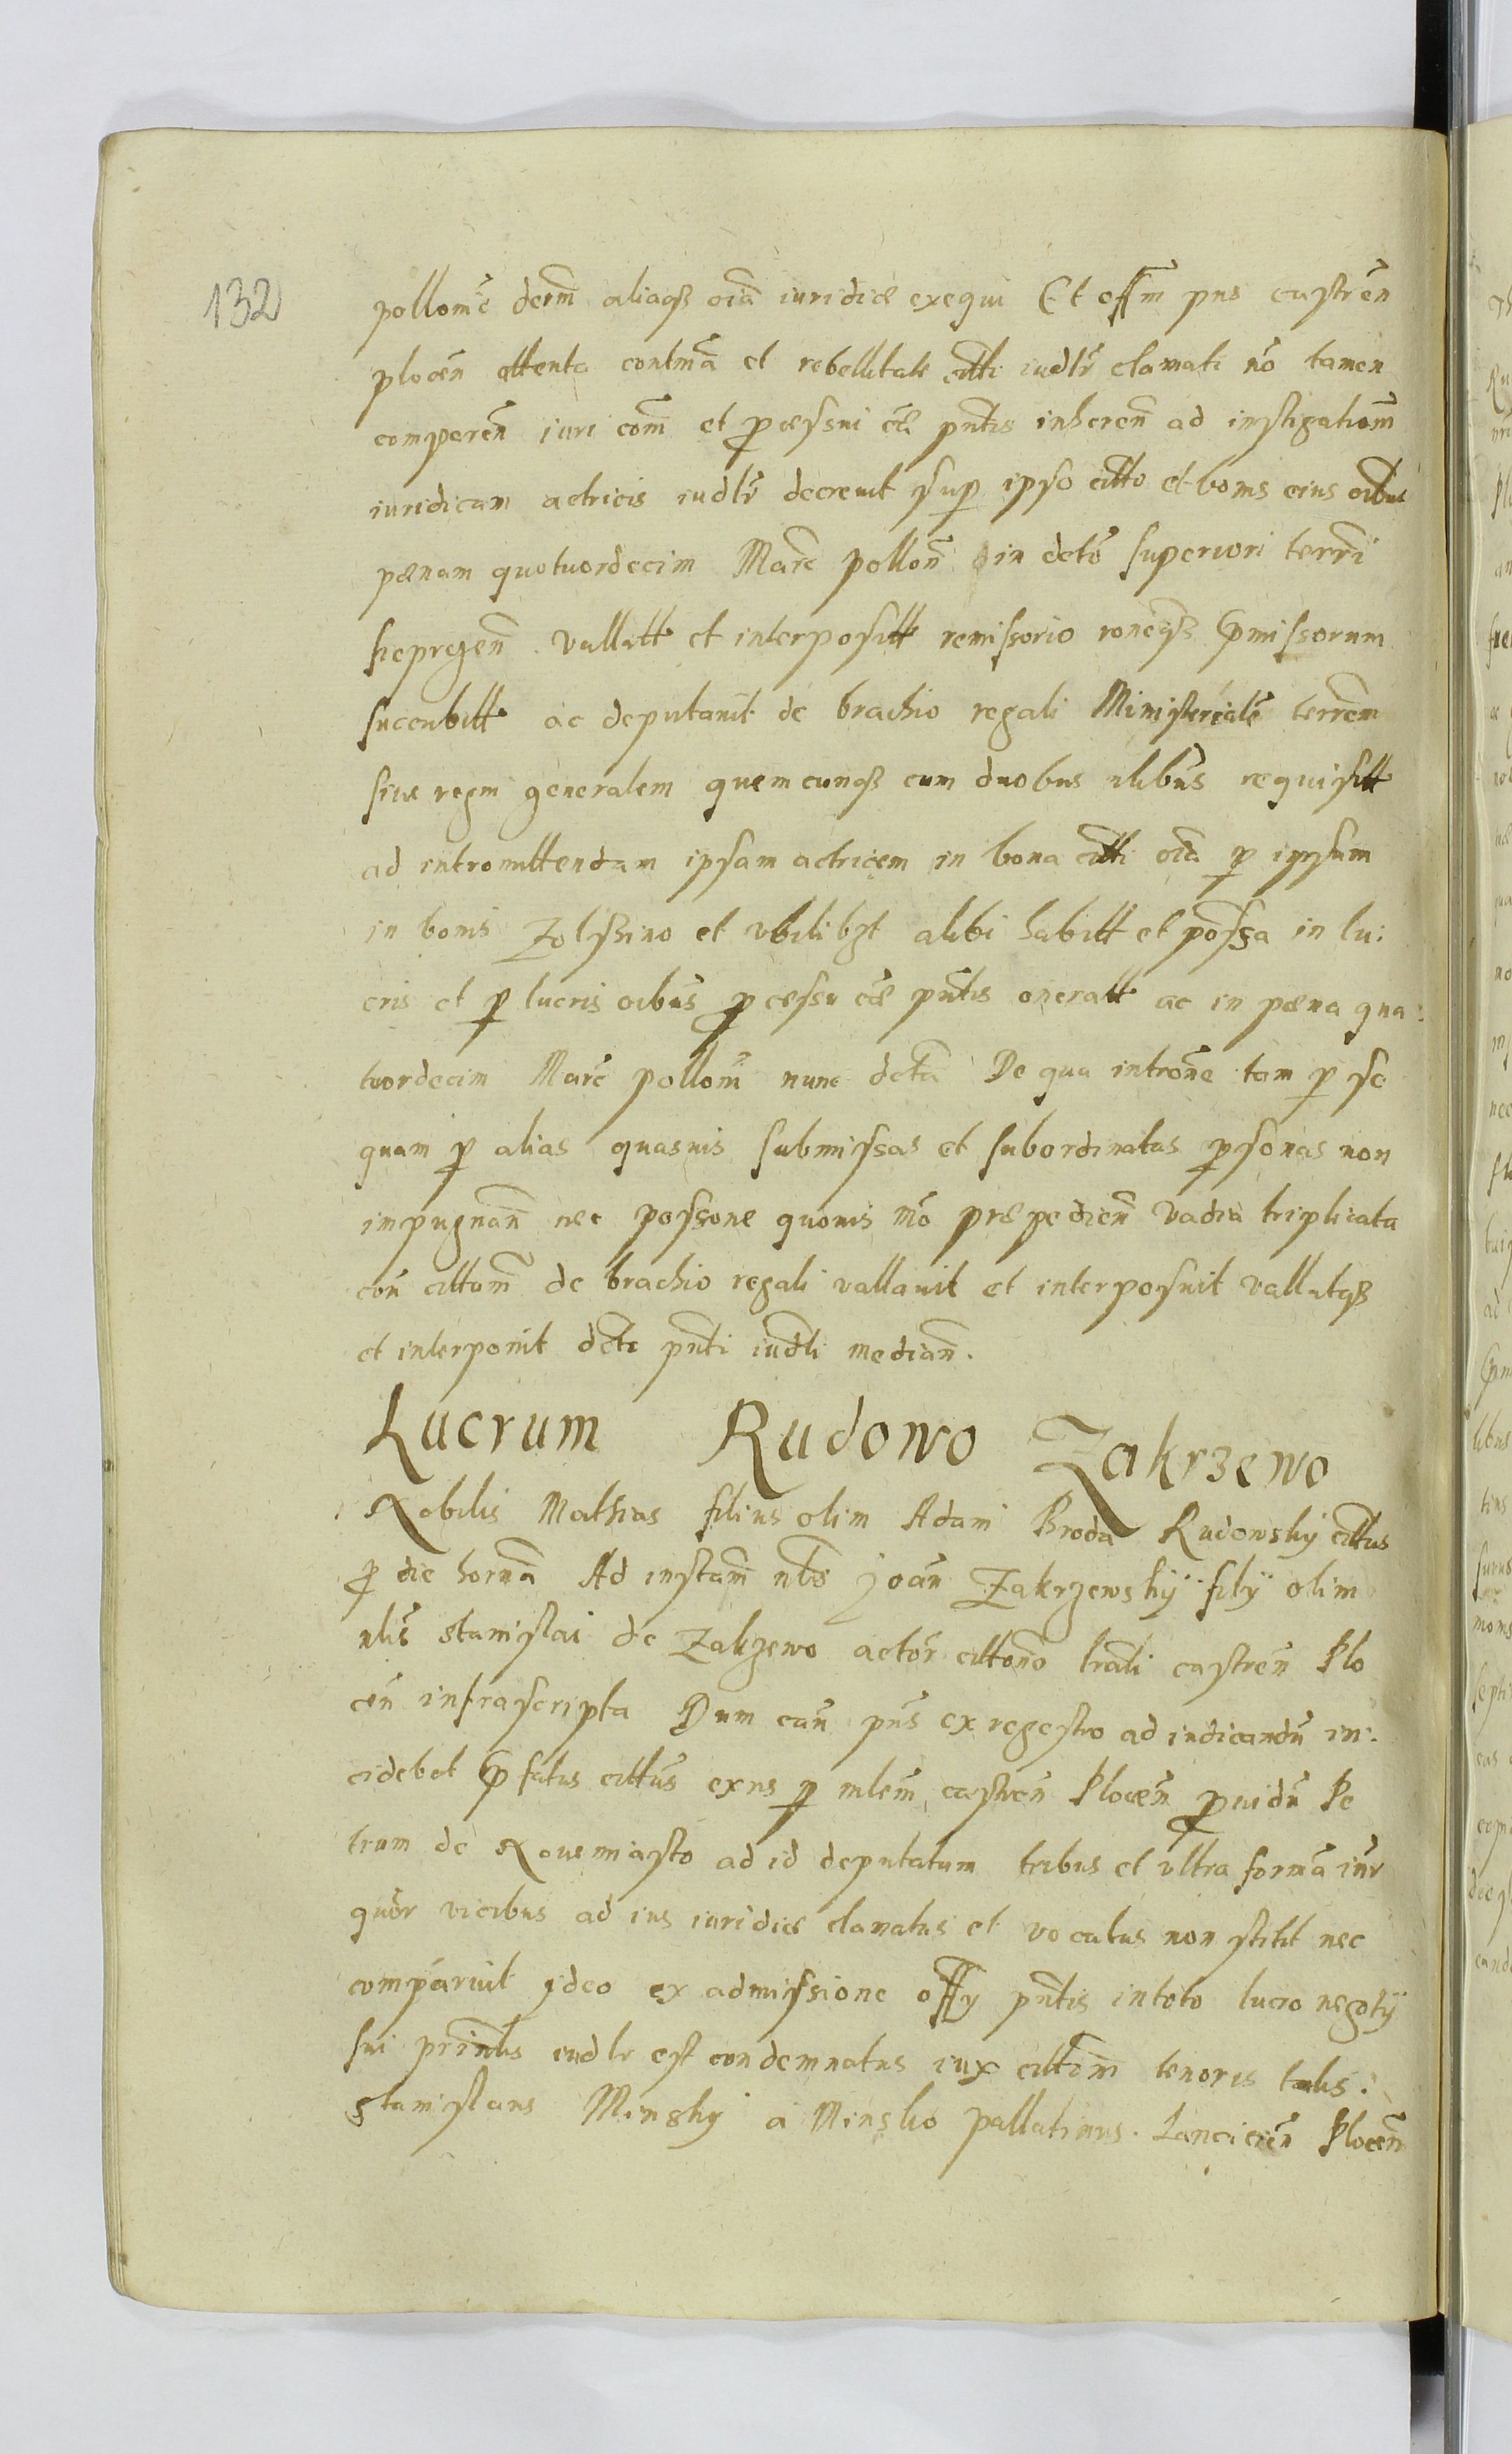 132
pollonc̃ decrm̃ aliaqȝ oĩa iuridice exequi Et offm̃ pñs castrẽn
plocẽn attenta contmã et rebellitate citti iudlr̃ clamati nõ tamen
comparẽn iuri com̃ et pcessui cæ pñtis inherẽn ad instigatiom̃
iuridicam actricis iudlr̃ decreuit sup ipso citto et bonis eius oĩbus
pænam quotuordecim Marc̃ pollon̄ in deto superiori terri
sieprgen̄ vallatt et interpositt remissorio roneqȝ pmissorum
succubitt ac deputauit de brachio regali Ministerialẽ terrem̃
siue regni generalem quemcunqȝ cum duobus nlibus requisitt
ad intromittendam ipsam actricem in bona citti oĩa p ipsum
in bonis Zolissino et vbilibȝt alibi habitt et põssa in lu:
cris et p lucris oĩbus pcessu cæ pñtis oneratt ac in pæna qua:
tuordecim Marc̃ pollon̄ nunc detã De qua intrõne tam p se
quam p alias quasuis submissas et subordinatas psonas non
impugnan̄ nec possone quouis mõ præpedien̄ vadia triplicata
con̄ cittum̃ de brachio regali vallauit et interposuit vallatqȝ
et interponit dcto pñti iudli median̄.
Lucrum Rudowo Zakrzewo
Nobilis Mathias filius olim Adami Broda Rudowsky cittus
p die hornã Ad instam̃ nbs Joan̄ Zakrzewskÿ filÿ olim
nlis stanislai de Zakrzewo actor̃ cittono trali castren̄ Plo
cen̄ infrascripta Dum cau pñs ex regestro ad iudicandũ in:
cidebat pfatus cittus exns p mlem̃ castren̄ Plocen̄ puidũ Pe
trum de Nouemiasto ad id deputatum tribus et vltra formã iur̃
quor vicibus ad ius iuridice clamatus et vocatus non stitit nec
comparuit jdeo ex admissione offy pñtis in toto lucro negotÿ
sui prinlis iudlr est condemnatus iux cittom̃ tenoris talis:
Stanislaus Minsky a Minsko pallatinus. Lancicien̄ Plocen̄